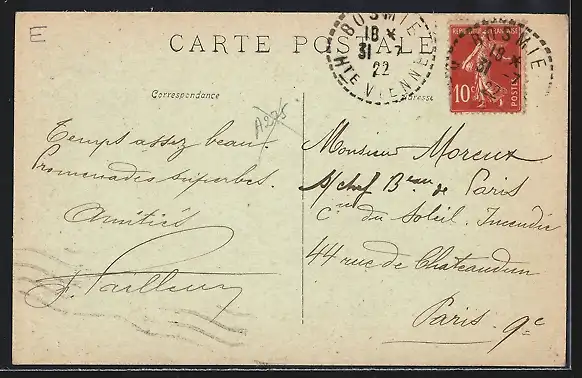 E
CARTE POSTALE
BUSMIE
18 *
31 - 7
22
HTE VIENNE
BUSMIE
18 *
31 - 7
22
10c
POSTES
Correspondance
Adresse
A275
Temps assez beau.
Promenades superbes.
Amitiés
Monsieur Moreux
s/chef Beau de Paris
Cie du Soleil. Incendie
44 rue de Chateaudun
Paris. 9e